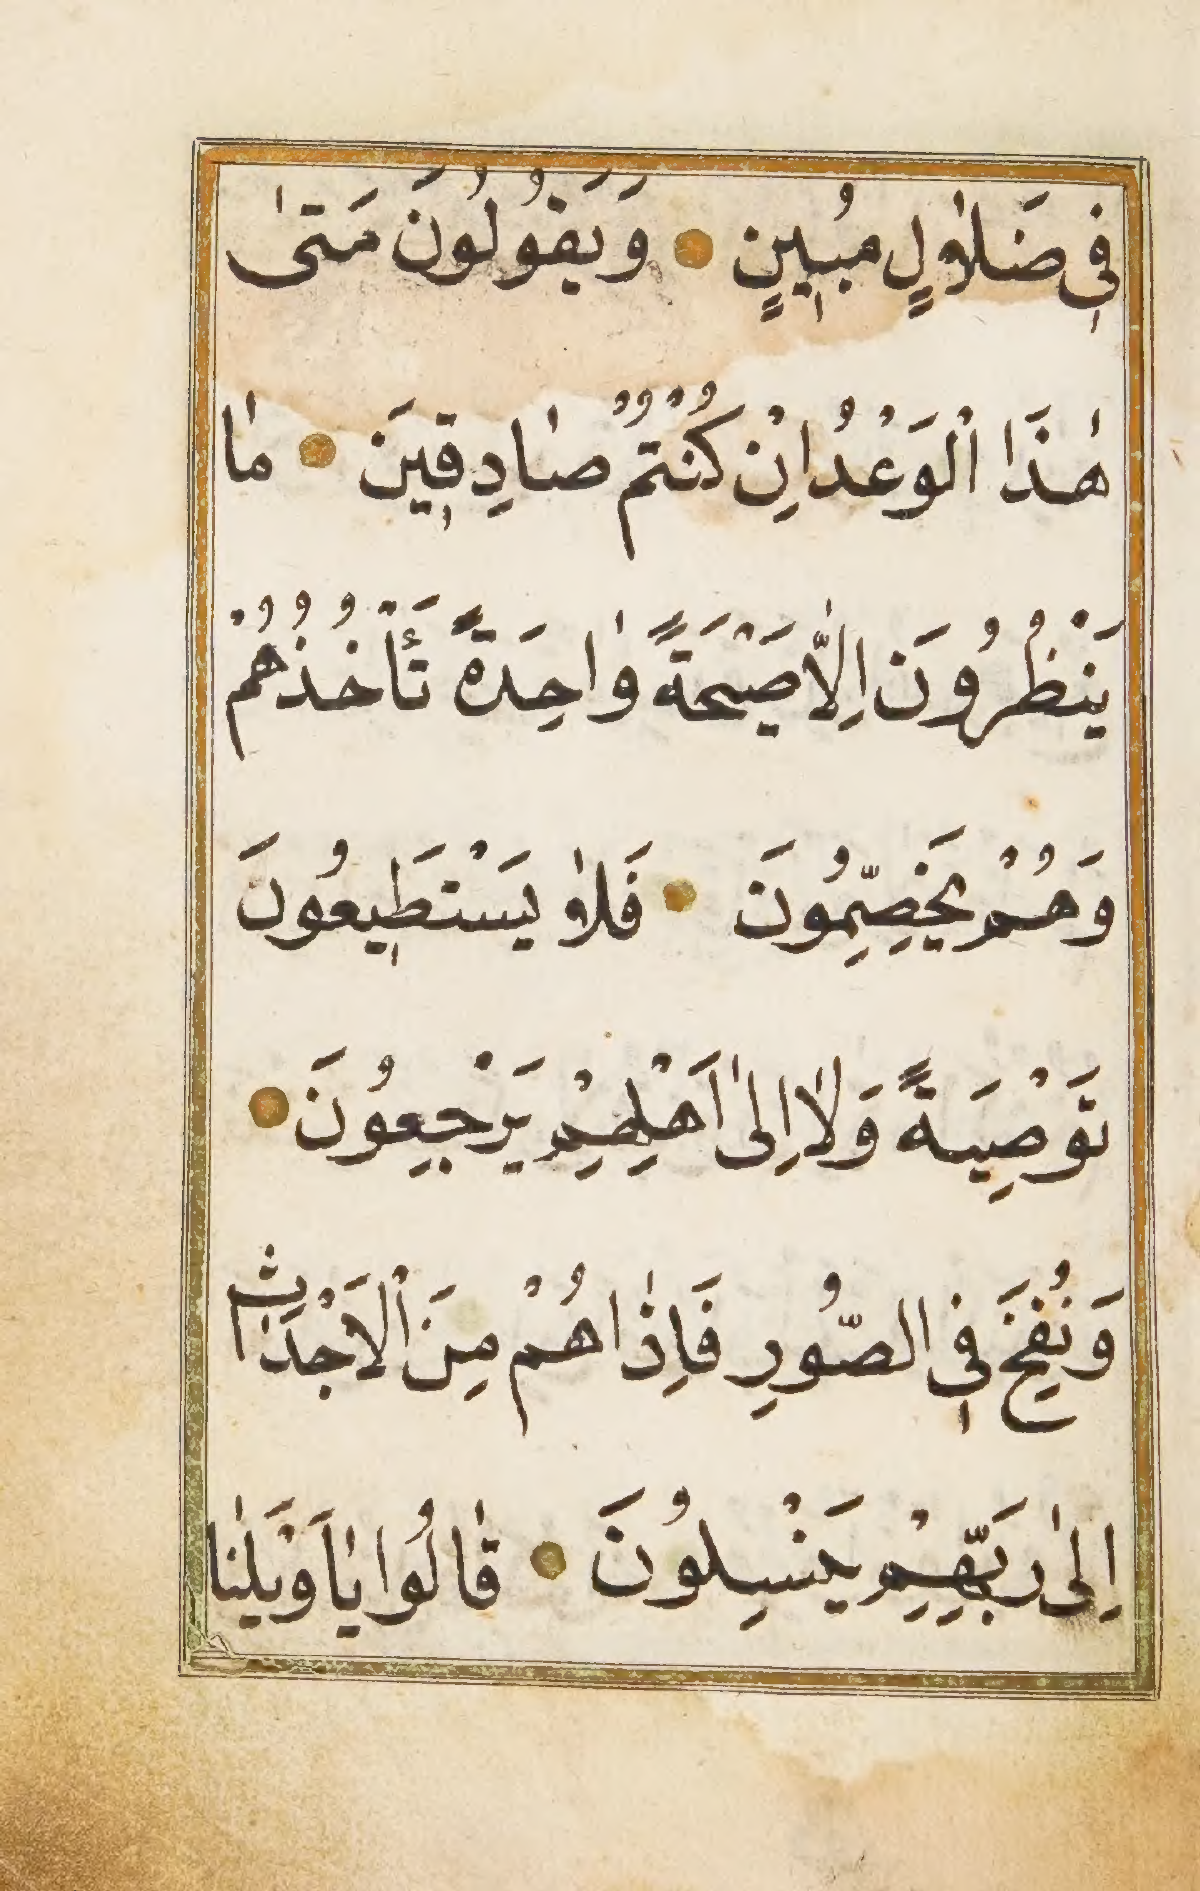 فِى ضَلَالٍ مُبِينٍ وَيَقُولُونَ مَتىٰ
هٰذَا الْوَعْدُ اِنْ كُنْتُمْ صَادِقِينَ مَا
يَنْظُرُونَ اِلَّا صَيْحَةً وَاحِدَةً تَأْخُذُهُمْ
وَهُمْ يَخِصِّمُونَ فَلَا يَسْتَطِيعُونَ
تَوْصِيَةً وَلَا اِلىٰ اَهْلِهِمْ يَرْجِعُونَ
وَنُفِخَ فِى الصُّورِ فَاِذَا هُمْ مِنَ الْاَجْدَاثِ
اِلىٰ رَبِّهِمْ يَنْسِلُونَ قَالُوا يَاوَيْلَنَا